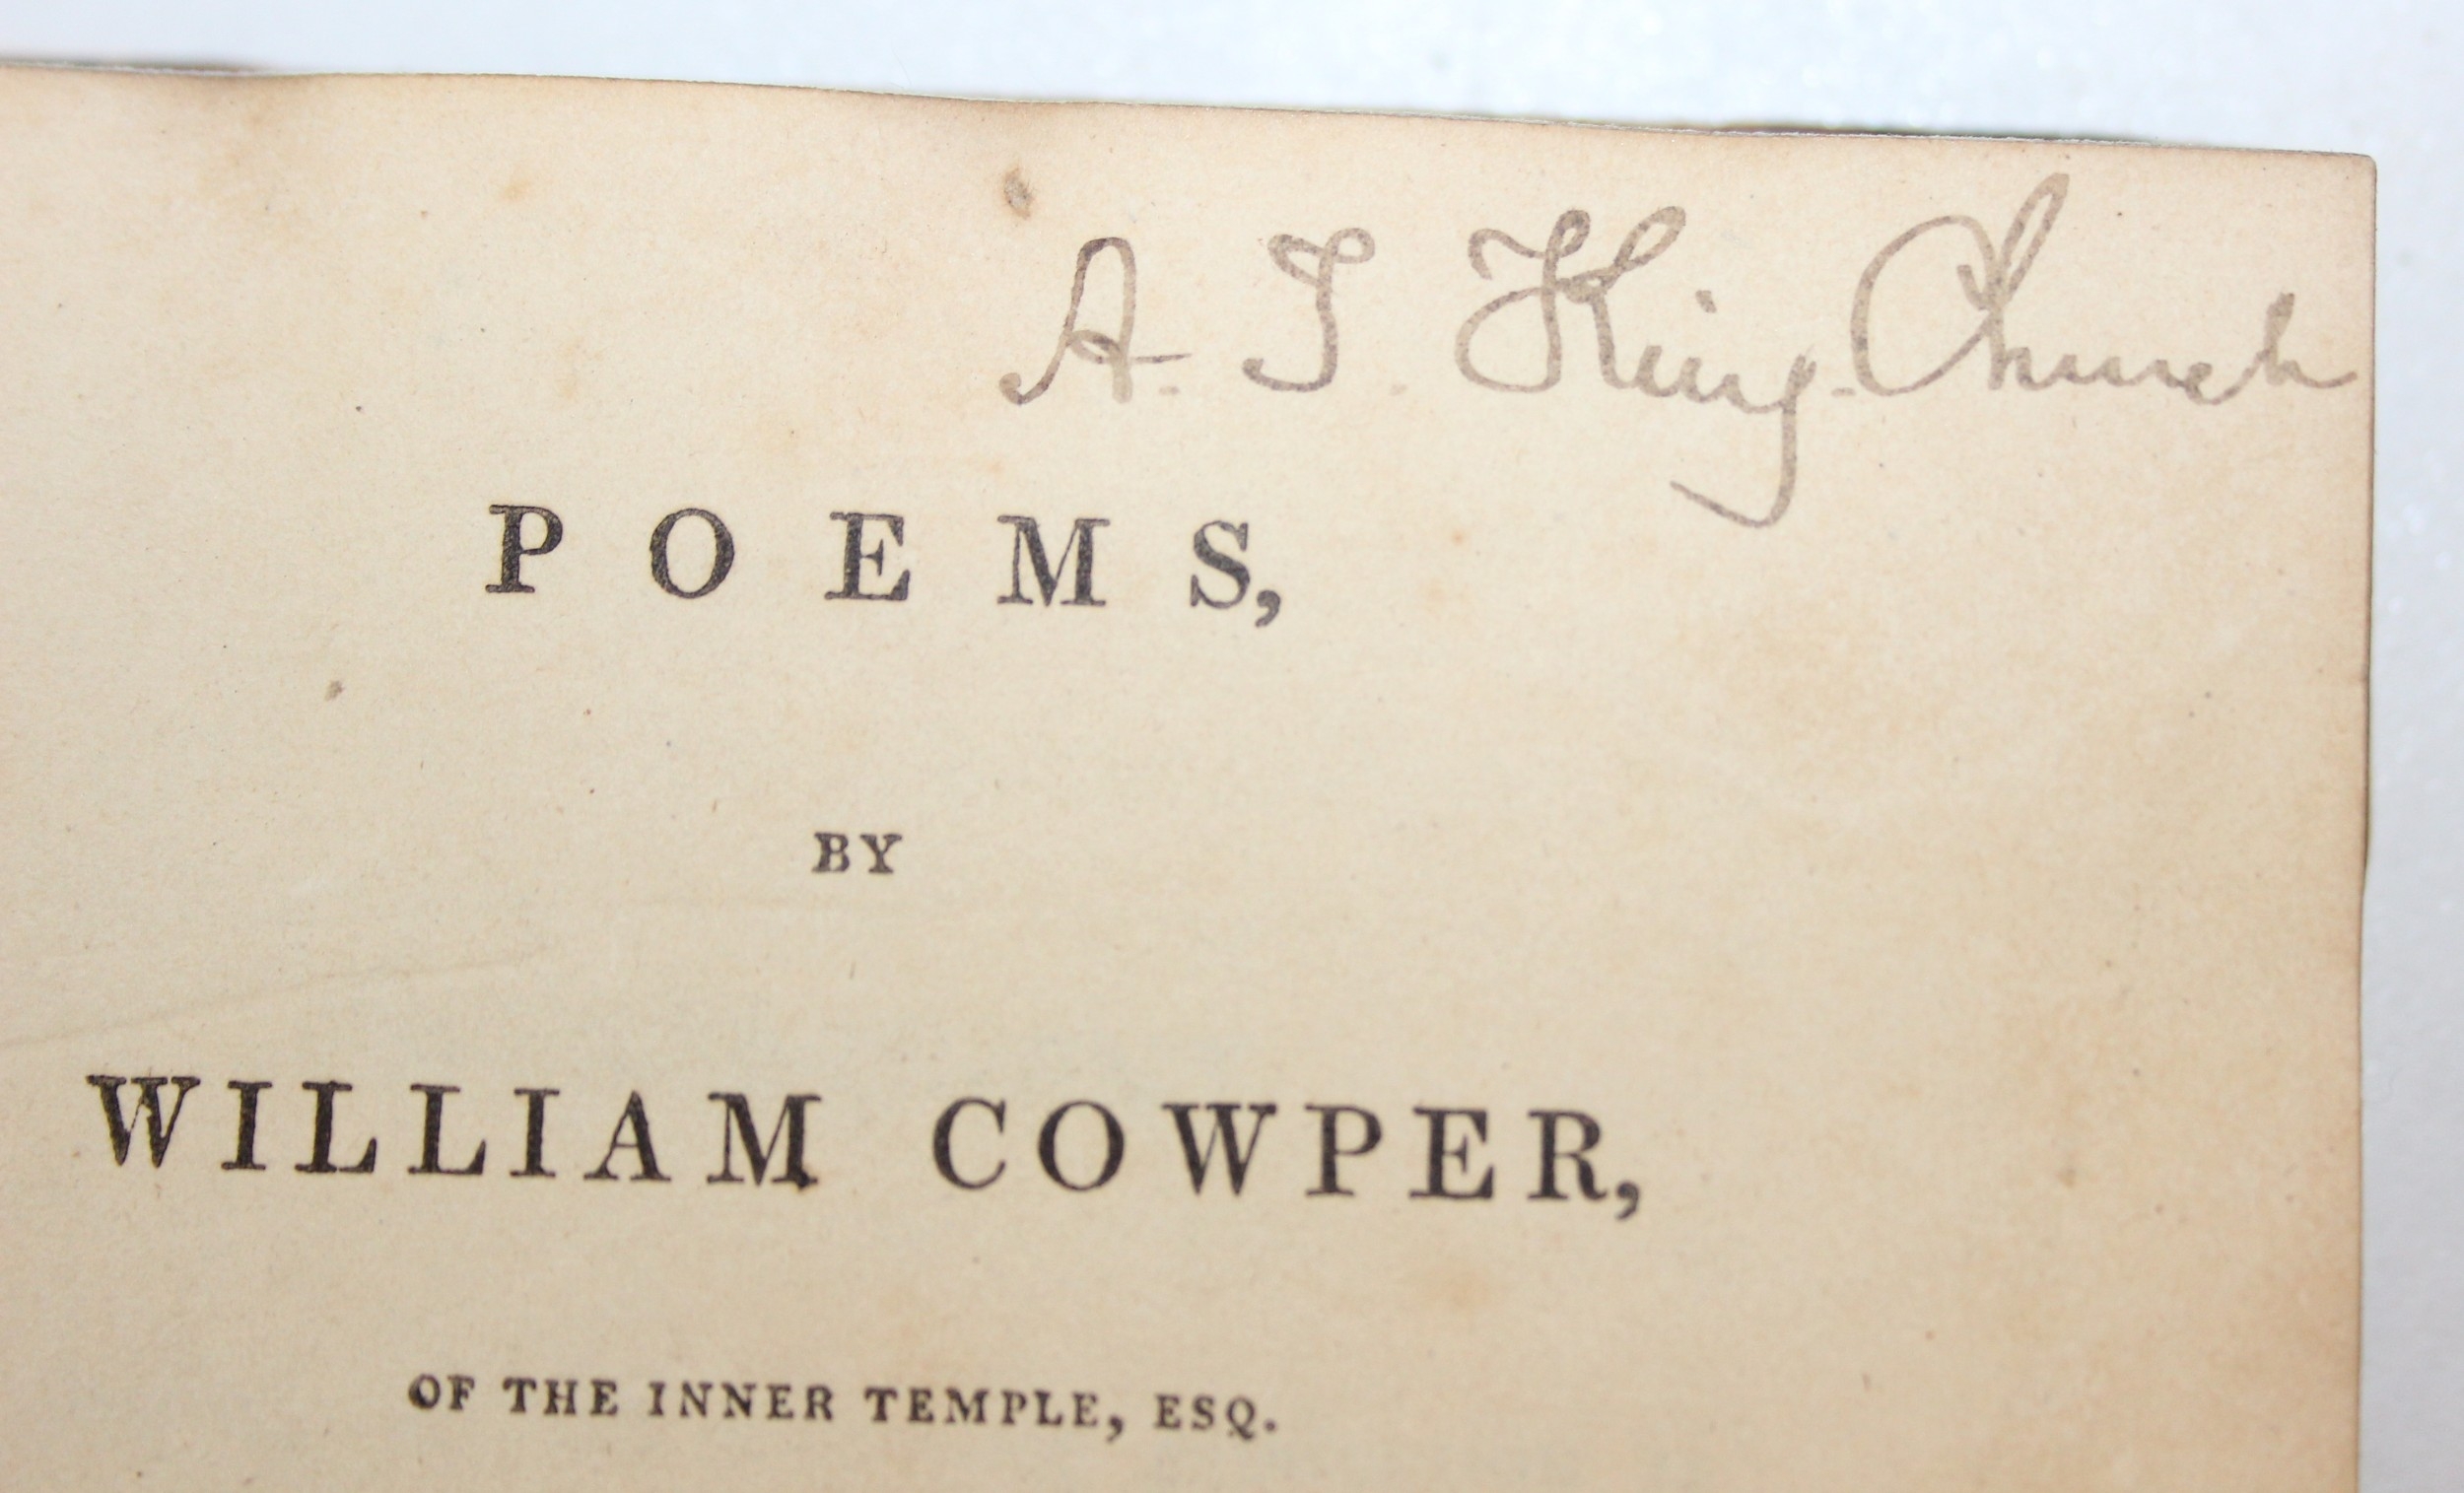 A. J. King-Church
POEMS,
BY
WILLIAM COWPER,
OF THE INNER TEMPLE, ESQ.